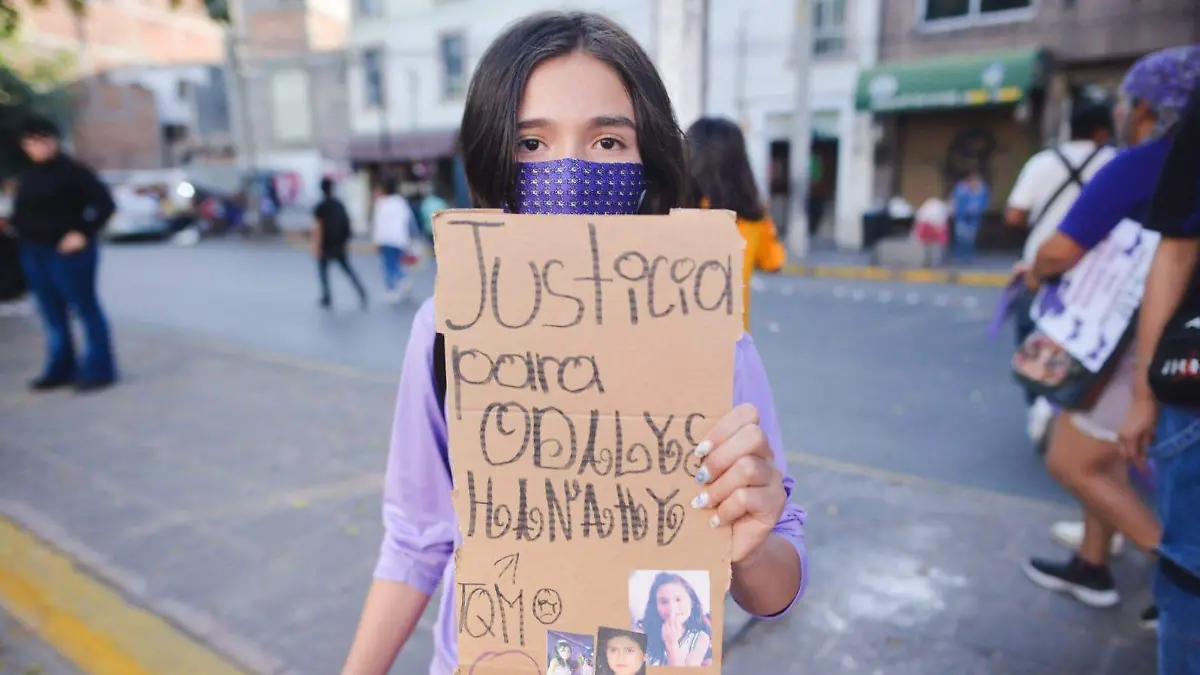 Justicia
para
ODALYS
HANAHY
TQM